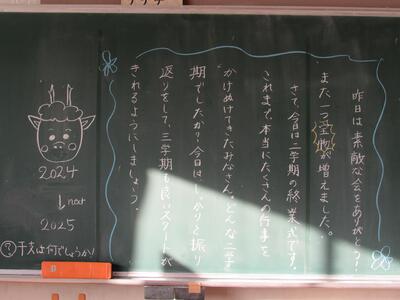 昨日は素敵な会をありがとう!
また一つ宝物が増えました。
さて、今日は二学期の終業式です。
これまで、本当にたくさんの行事を
かけぬけてきたみなさん。どんな二学
期でしたか?今日はしっかりと振り
返りをして、三学期も良いスタートが
きれるようにしましょう。
2024
↓next
2025
干支は何でしょうか!